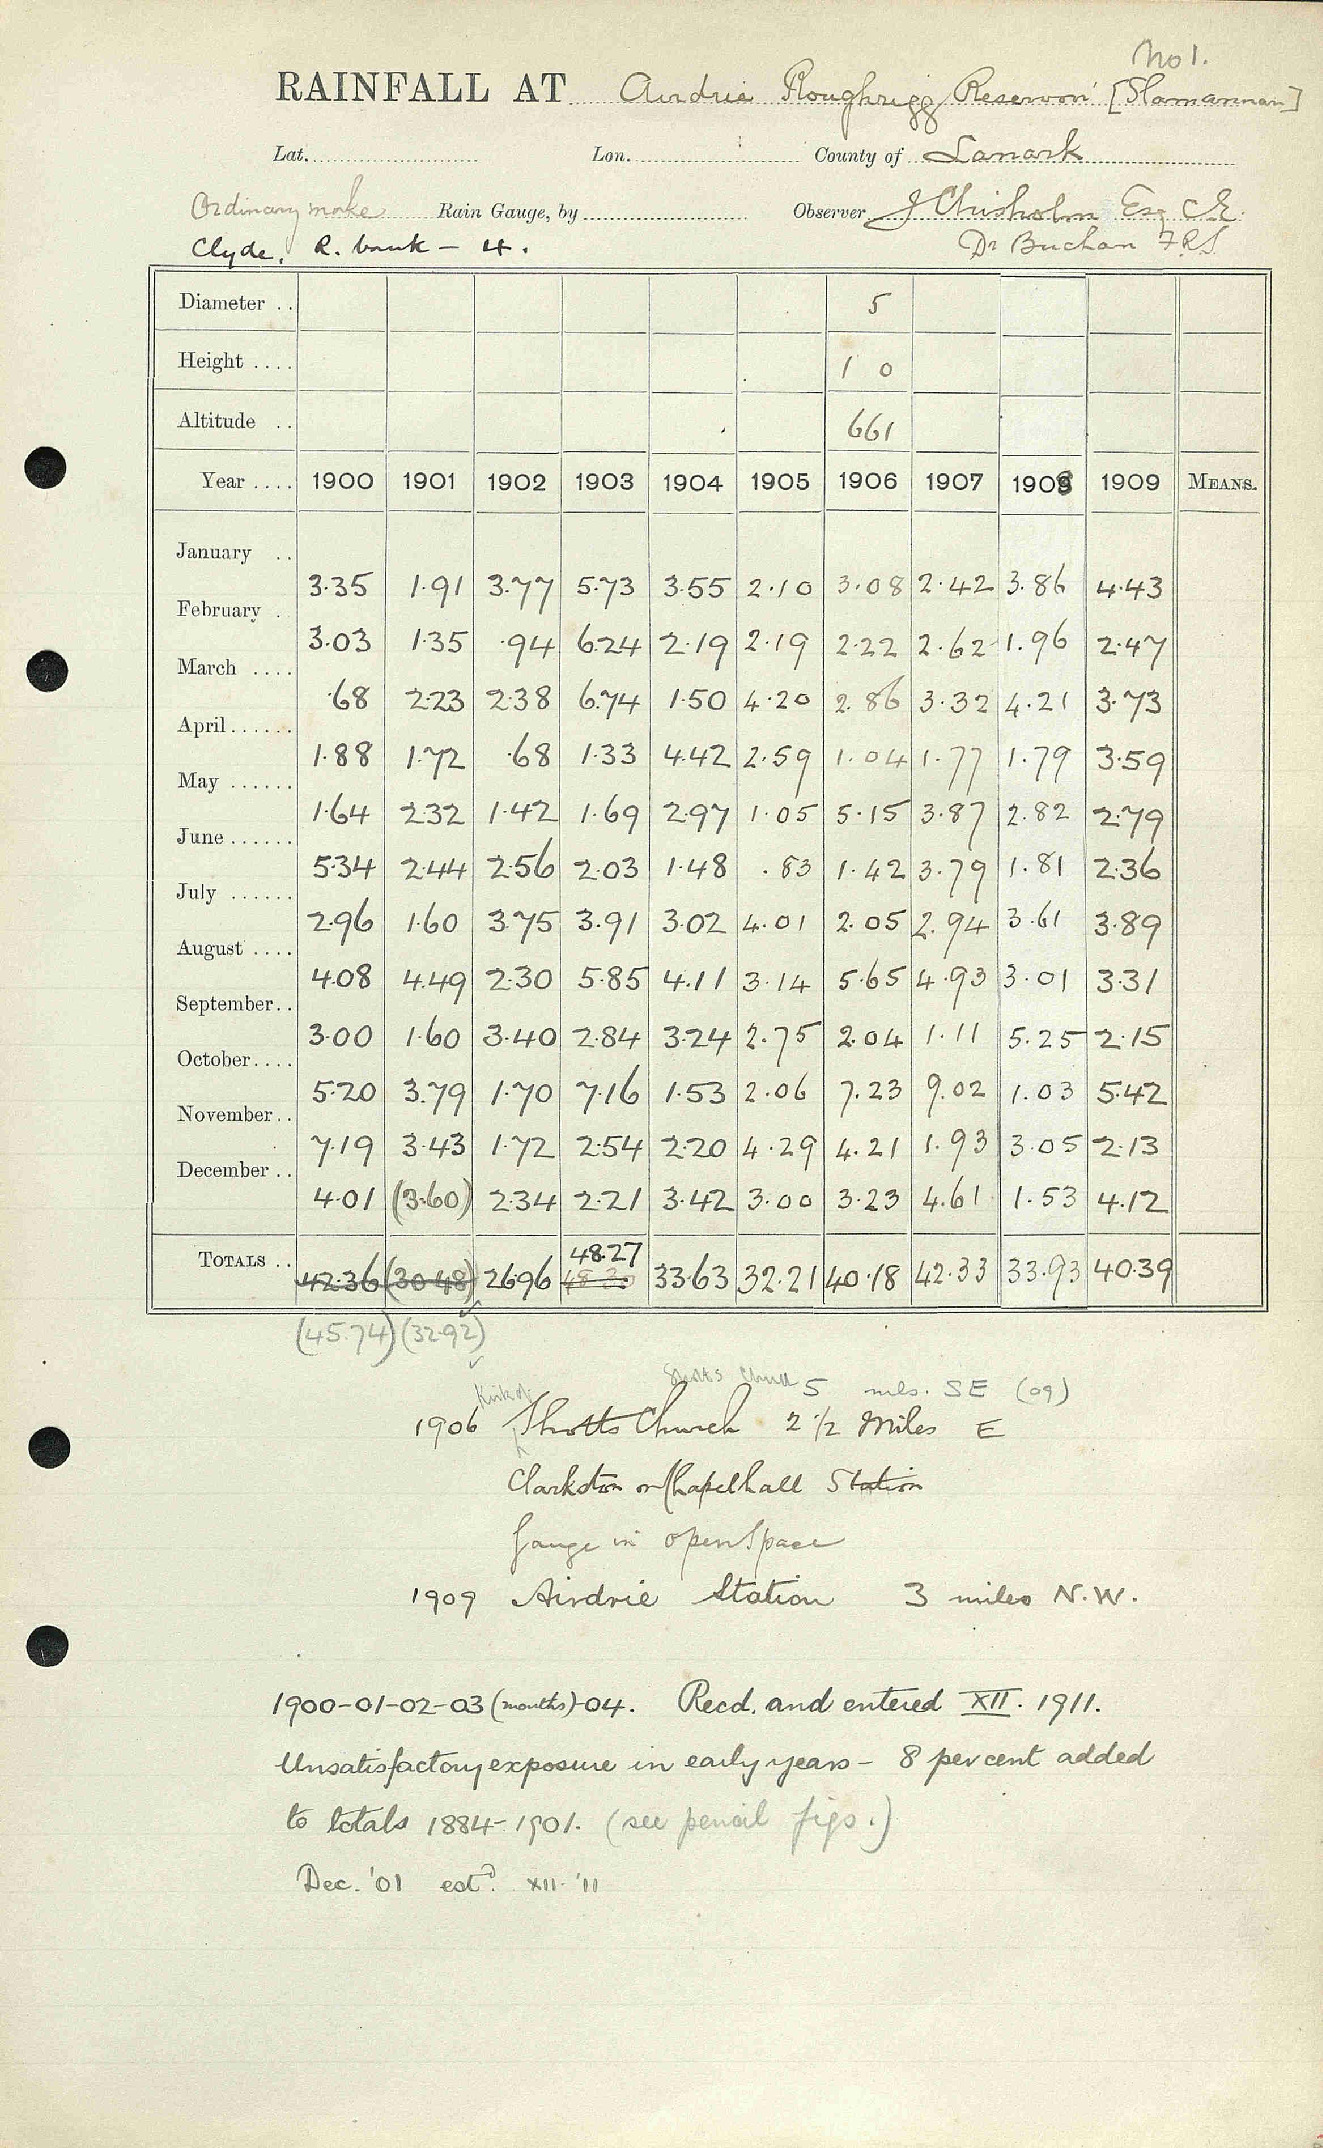 No 1.
RAINFALL AT Airdrie Roughrigg Reservoir [Slamannan]
Lat. Lon. County of Lanark
Ordinary make Rain Gauge, by Observer J Chisholm Esq C.E.
Clyde, R. bank - 4. Dr Buchan F.R.S.
Diameter .. 5
Height .... 1 0
Altitude .. 661
Year .... 1900 1901 1902 1903 1904 1905 1906 1907 1908 1909 MEANS.
January .. 3.35 1.91 3.77 5.73 3.55 2.10 3.08 2.42 3.86 4.43
February . 3.03 1.35 .94 6.24 2.19 2.19 2.22 2.62 1.96 2.47
March .... .68 2.23 2.38 6.74 1.50 4.20 2.86 3.32 4.21 3.73
April...... 1.88 1.72 .68 1.33 4.42 2.59 1.04 1.77 1.79 3.59
May ...... 1.64 2.32 1.42 1.69 2.97 1.05 5.15 3.87 2.82 2.79
June...... 5.34 2.44 2.56 2.03 1.48 .83 1.42 3.79 1.81 2.36
July ...... 2.96 1.60 3.75 3.91 3.02 4.01 2.05 2.94 3.61 3.89
August .... 4.08 4.49 2.30 5.85 4.11 3.14 5.65 4.93 3.01 3.31
September.. 3.00 1.60 3.40 2.84 3.24 2.75 2.04 1.11 5.25 2.15
October.... 5.20 3.79 1.70 7.16 1.53 2.06 7.23 9.02 1.03 5.42
November.. 7.19 3.43 1.72 2.54 2.20 4.29 4.21 1.93 3.05 2.13
December .. 4.01 (3.60) 2.34 2.21 3.42 3.00 3.23 4.61 1.53 4.12
48.27
TOTALS .. 42.36 (30.48) 26.96 48.30 33.63 32.21 40.18 42.33 33.93 40.39
(45.74) (32.92)
Shotts Church 5 mls. SE (09)
Kirk of
1906 Shotts Church 2 1/2 Miles E
Clarkston or Chapelhall Station
Gauge in open Space
1909 Airdrie Station 3 miles N.W.
1900-01-02-03 (months)-04. Recd. and entered XII. 1911.
Unsatisfactory exposure in early years - 8 per cent added
to totals 1884-1901. (see pencil figs.)
Dec. '01 estd. XII. '11